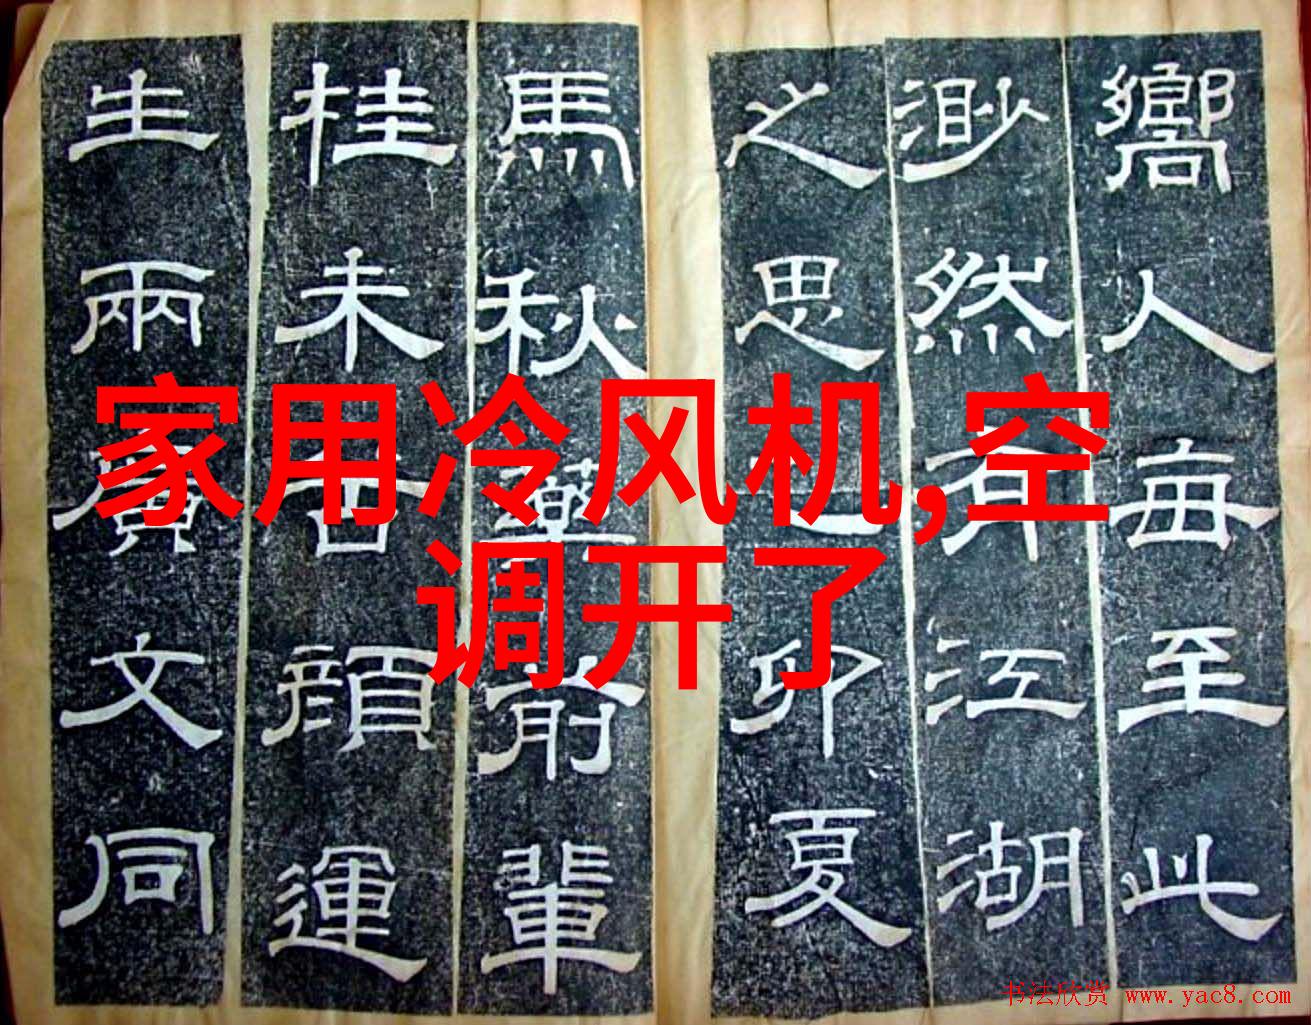 家用冷风机,空
调开了
嚮人每至此
渺然有江湖
之思卯夏
馬秋藥前輩
桂未顏運
生兩廣文同
书法欣赏 www.yac8.com